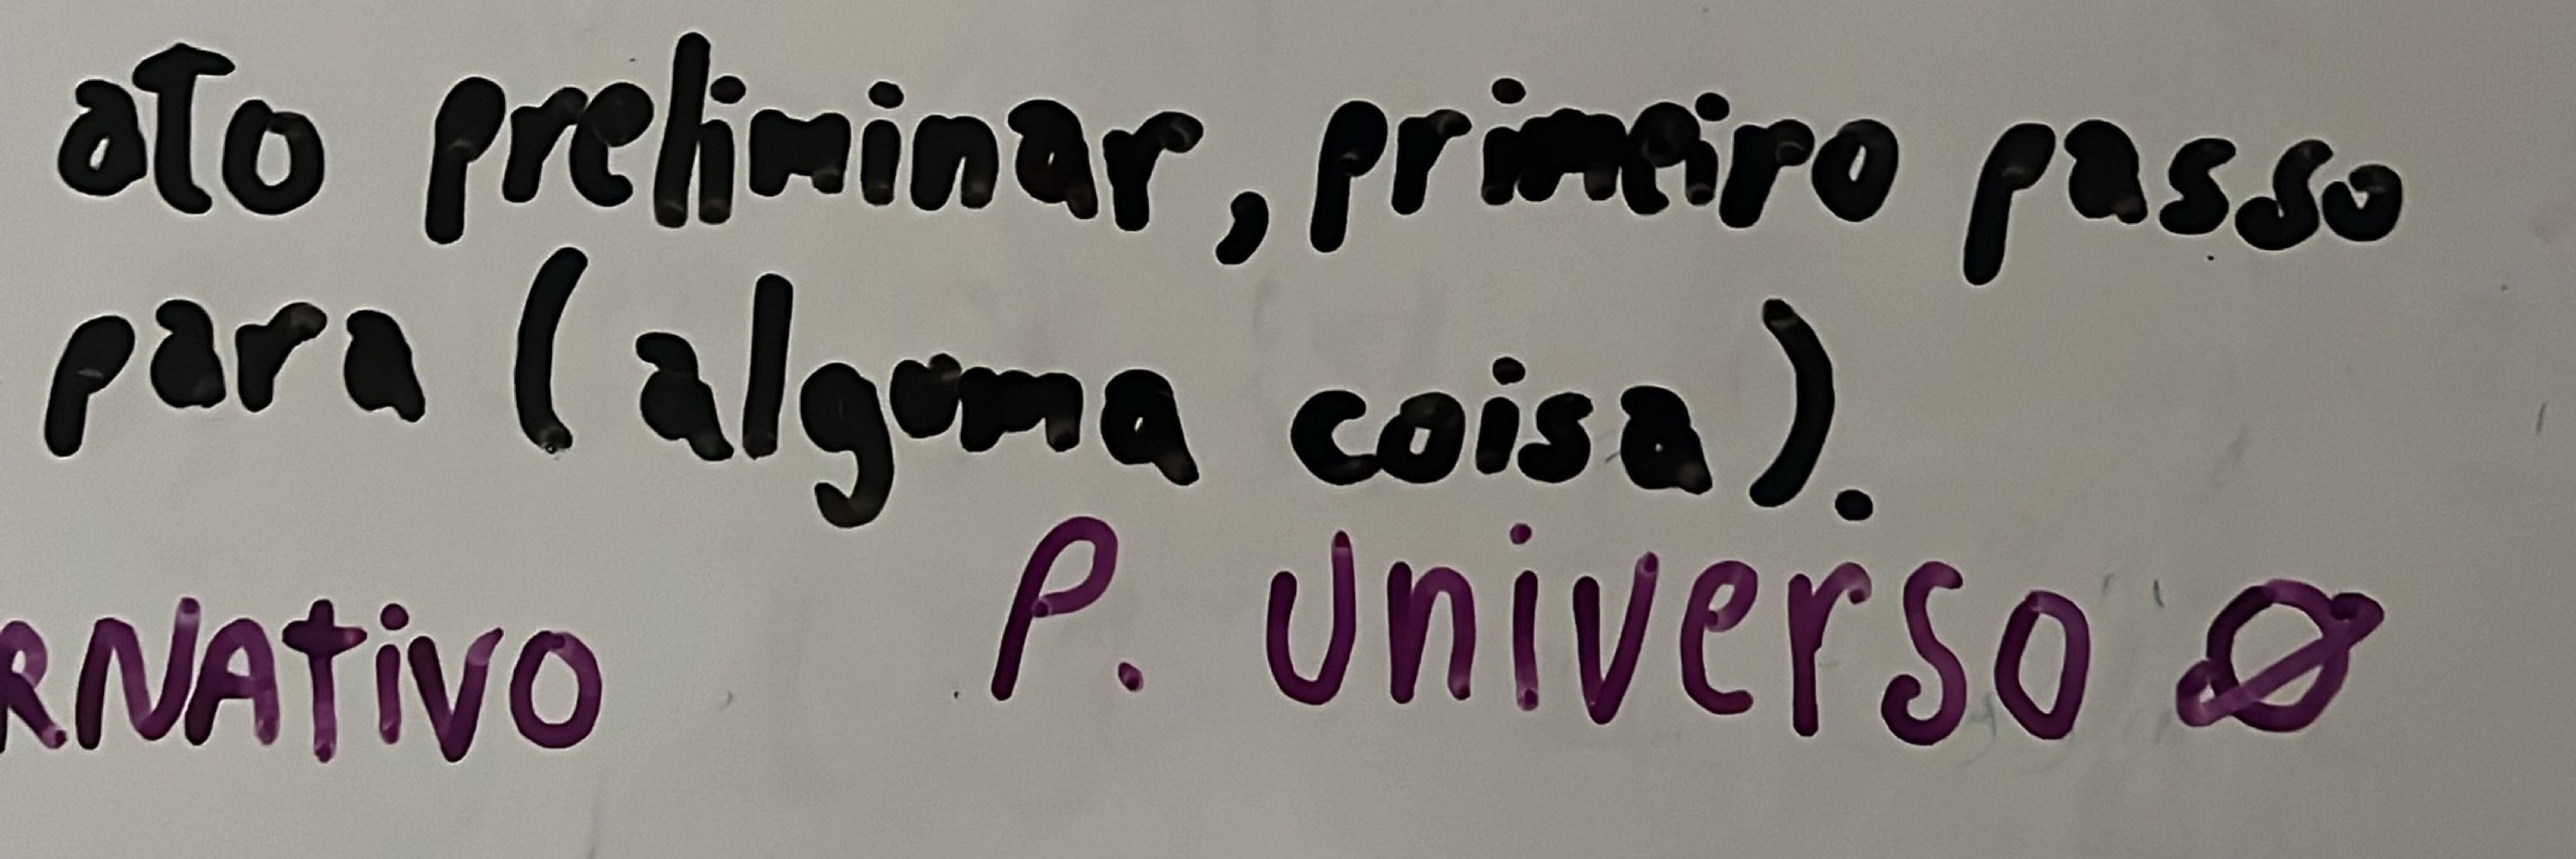 ato preliminar, primeiro passo
para (alguma coisa).
RNAtivo P. Universo